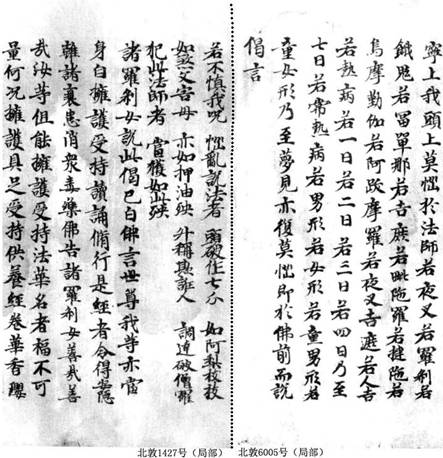 寧上我頭上莫惱於法師若夜叉若羅剎若
餓鬼若富單那若吉蔗若毗陁羅若揵陁若
烏摩勒伽若阿跋摩羅若夜叉吉遮若人吉
若熱病若一日若二日若三日若四日乃至
七日若常熱病若男形若女形若童男形若
童女形乃至夢見亦復莫惱即於佛前而說
偈言
若不慎我呪 惱亂說法者 頭破作七分 如阿梨樹枝
如煞父害母 亦如押油殃 外稱欺誑人 調達破僧罪
犯此法師者 當獲如此殃
諸羅剎女說此偈已白佛言世尊我等亦當
身自擁護受持讀誦脩行是經者令得安隱
離諸衰患消衆毒藥佛告諸羅剎女善哉善
哉汝等但能擁護受持法華名者福不可
量何況擁護具足受持供養經卷華香瓔
北敦1427号（局部）
北敦6005号（局部）